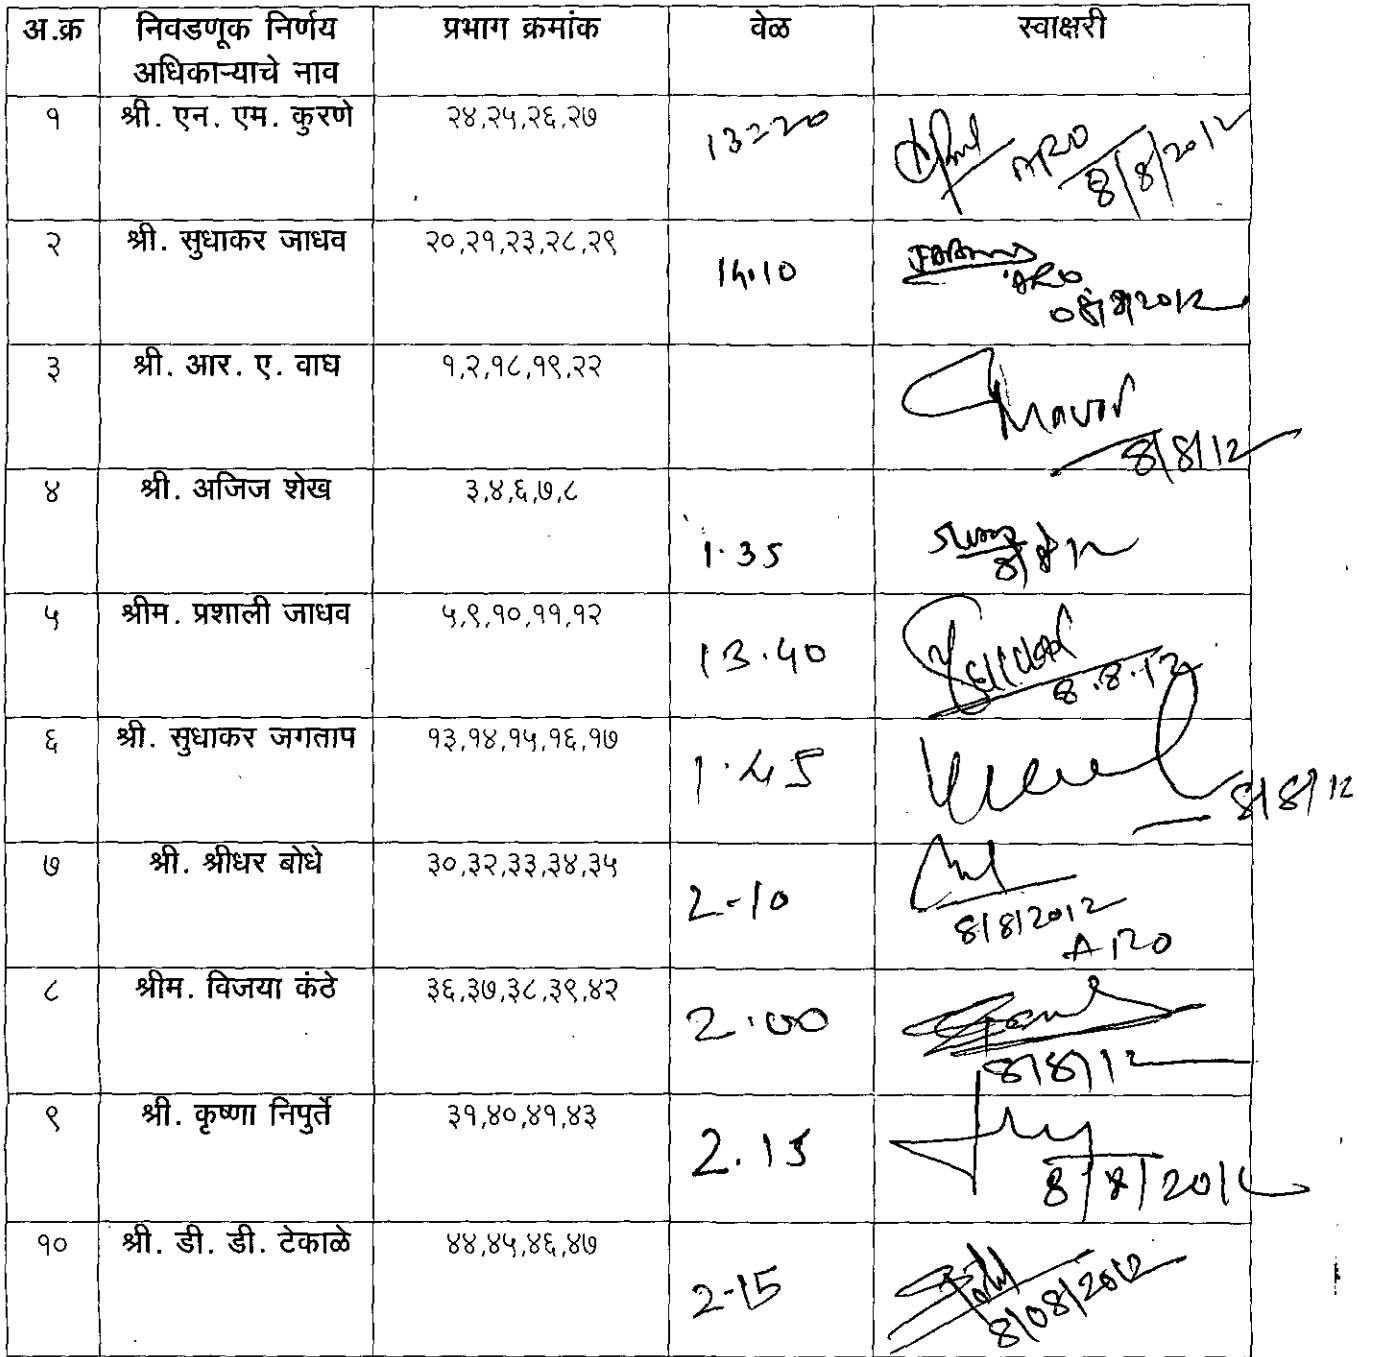 अ.क्र निवडणूक निर्णय प्रभाग क्रमांक वेळ स्वाक्षरी
अधिकाऱ्याचे नाव
१ श्री. एन. एम. कुरणे २४,२५,२६,२७ 13=20
ARO 8/8/2012
२ श्री. सुधाकर जाधव २०,२१,२३,२८,२९ 14.10
ARO
08/8/2012
३ श्री. आर. ए. वाघ १,२,१८,१९,२२
8/8/12
४ श्री. अजिज शेख ३,४,६,७,८
1.35 8/8/12
५ श्रीम. प्रशाली जाधव ५,९,१०,११,१२
13.40
8.8.12
६ श्री. सुधाकर जगताप १३,१४,१५,१६,१७
1.45 8/8/12
७ श्री. श्रीधर बोधे ३०,३२,३३,३४,३५
2-10
8/8/2012
ARO
८ श्रीम. विजया कंठे ३६,३७,३८,३९,४२
2.00
8/8/12
९ श्री. कृष्णा निपुर्ते ३१,४०,४१,४३
2.15
8/8/2012
१० श्री. डी. डी. टेकाळे ४४,४५,४६,४७
2-15
8/08/2012